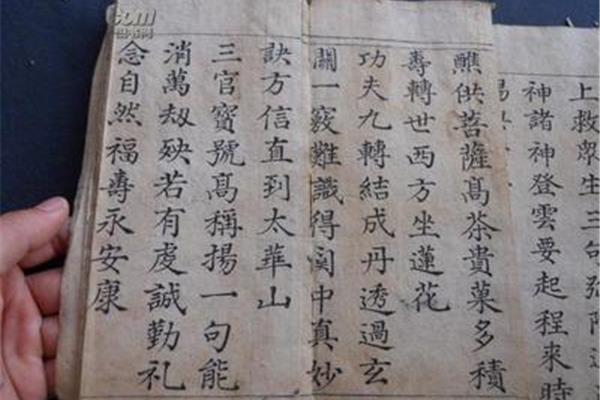 上救眾生三句
神諸神登雲要起程來時
醮供菩薩髙茶貴菓多積
壽轉世西方坐蓮花
功夫九轉結成丹透過玄
關一竅難識得中真妙
訣方信直到太華山
三官寳號髙稱揚一句能
消萬劫殃若有虔誠勤礼
念自然福壽永安康